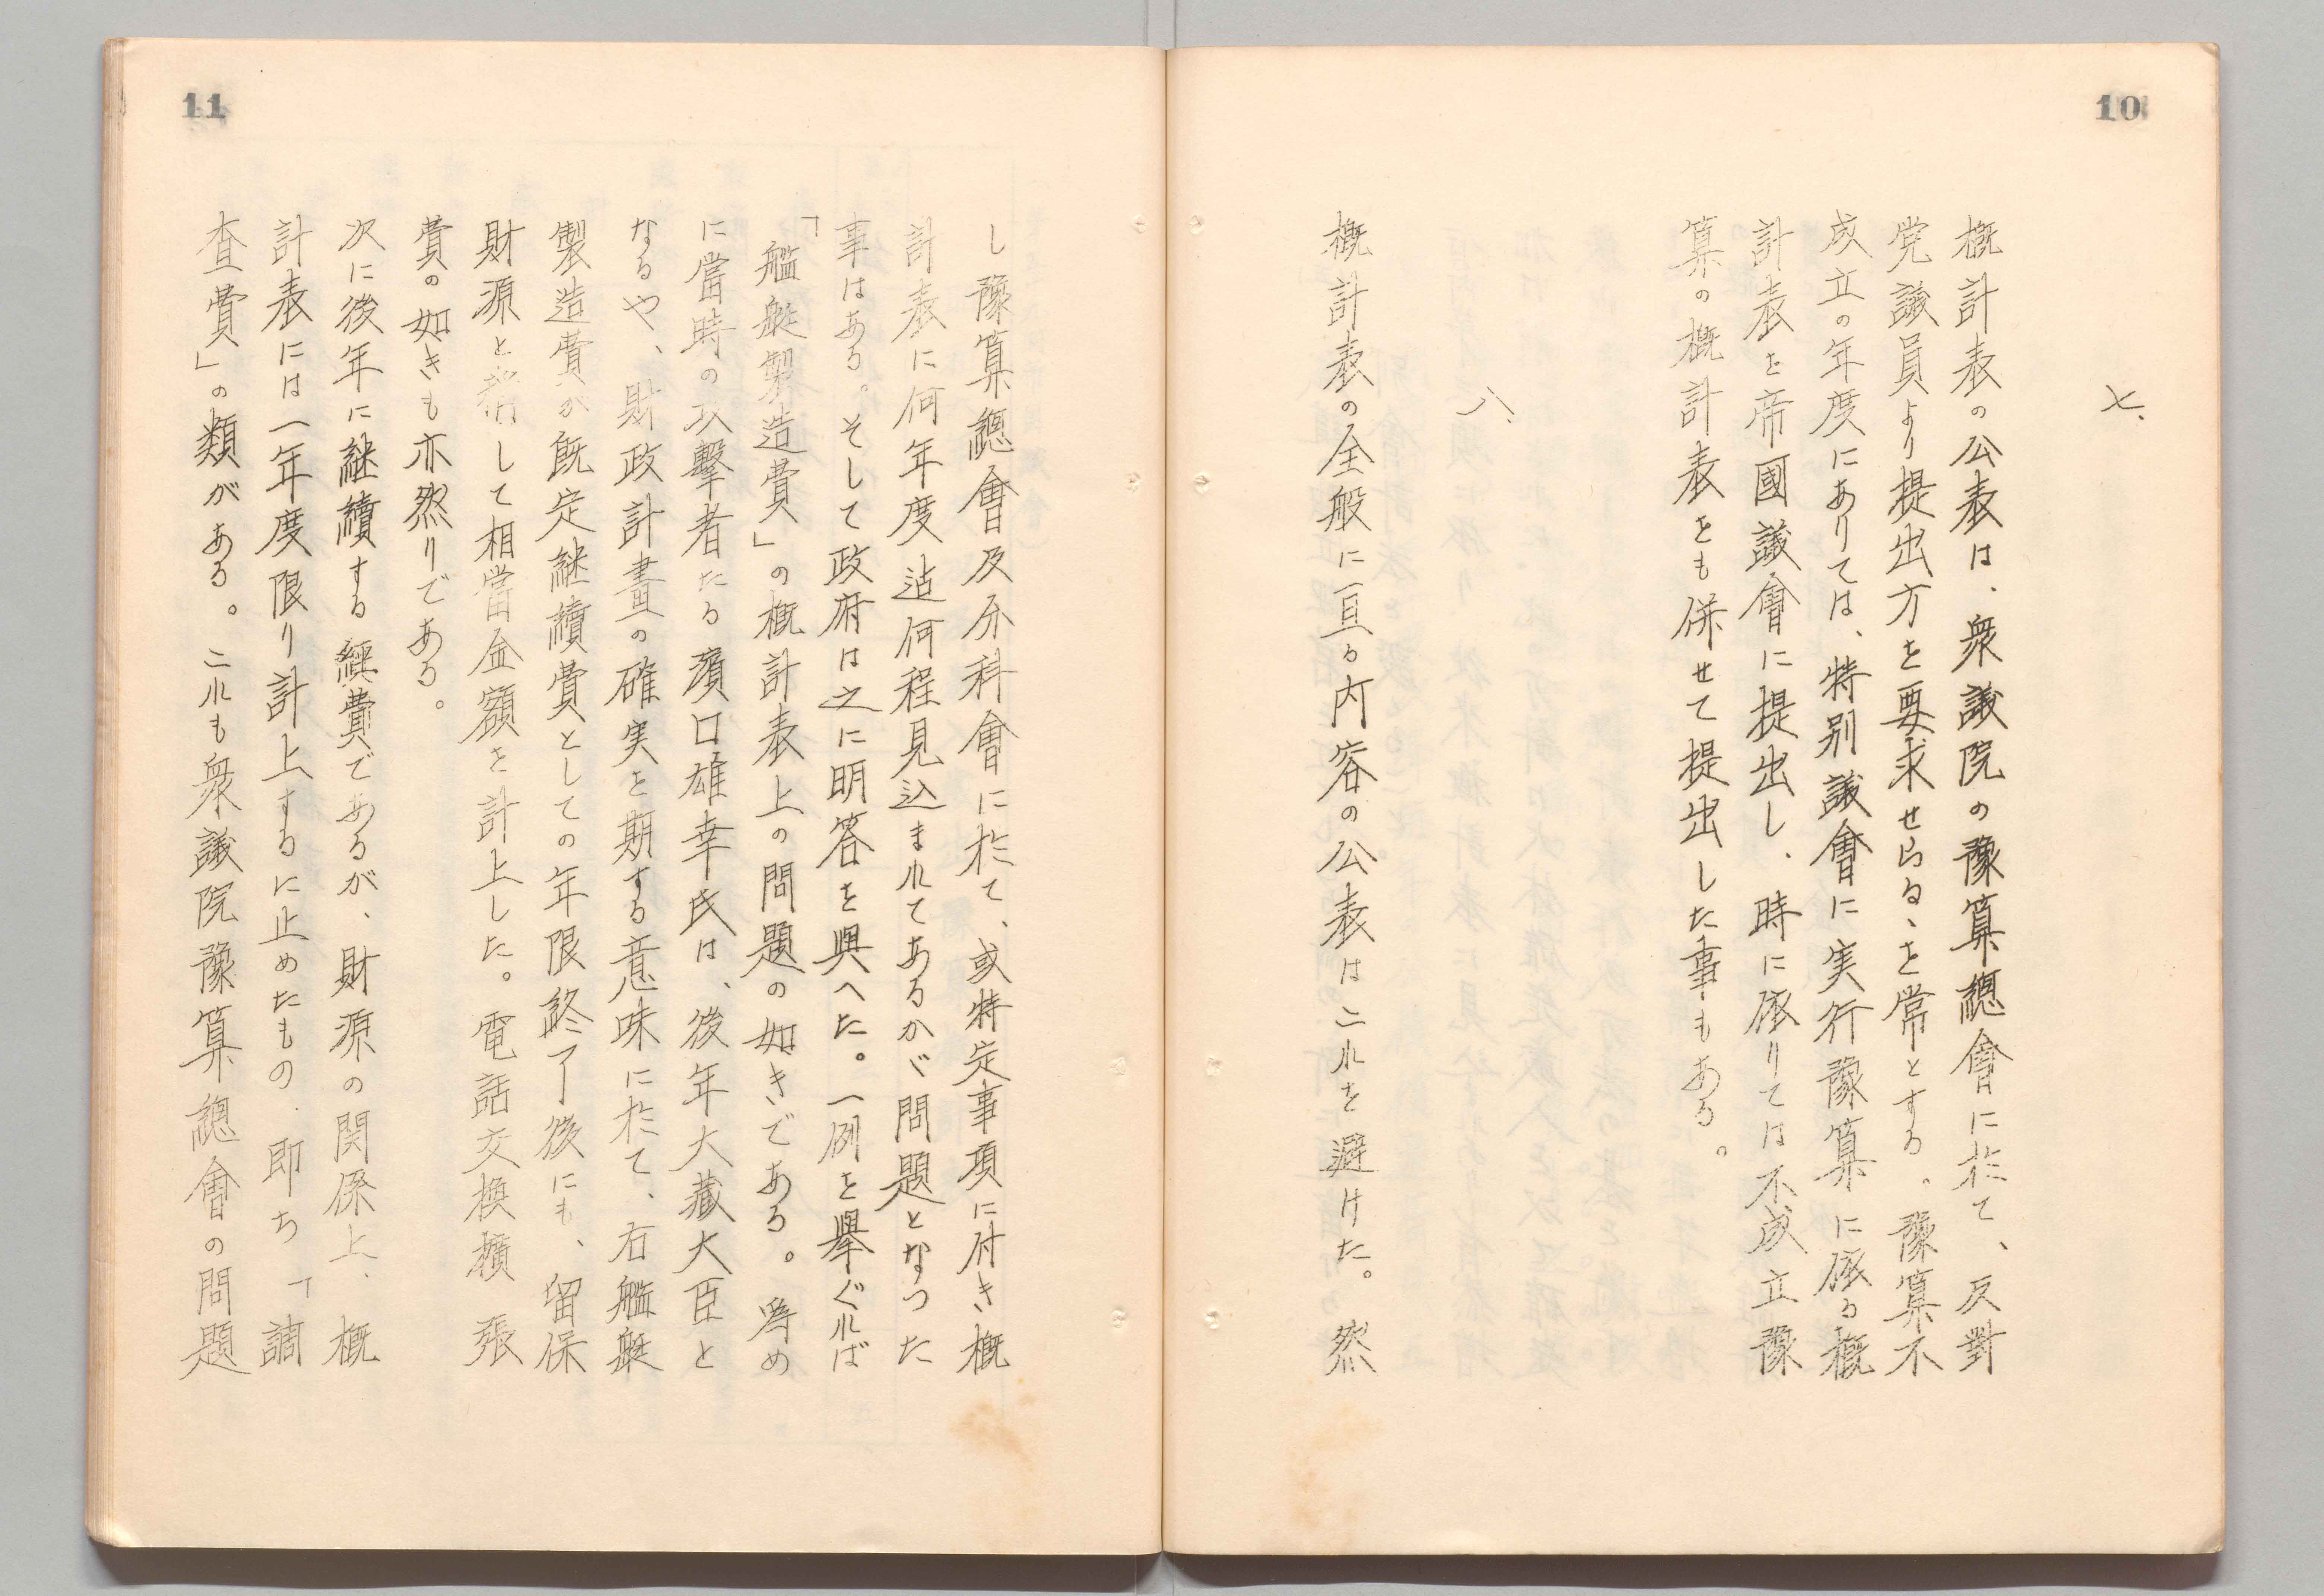 10
七、
概計表の公表は、衆議院の豫算總會に於て、反對
党議員より提出方を要求せらるゝを常とする。豫算不
成立の年度にありては、特别議會に実行豫算に依る概
計表を帝國議會に提出し、時に依りては不成立豫
算の概計表をも併せて提出した事もある。
八、
概計表の全般に亘る内容の公表はこれを避けた。然
11
し豫算總會及分科會に於て、或特定事項に付き概
計表に何年度迠何程見込まれてあるかゞ問題となつた
事はある。そして政府は之に明答を與へた。一例を擧ぐれば
「艦艇製造費」の概計表上の問題の如きである。爲め
に當時の攻擊者たる濱口雄幸氏は、後年大藏大臣と
なるや、財政計畫の確実を期する意味に於て、右艦艇
製造費が既定継續費としての年限終了後にも、留保
財源と稱して相當金額を計上した。電話交換擴張
費の如きも亦然りである。
次に後年に継續する經費であるが、財源の関係上、概
計表には一年度限り計上するに止めたもの、即ち「調
査費」の類がある。これも衆議院豫算總會の問題